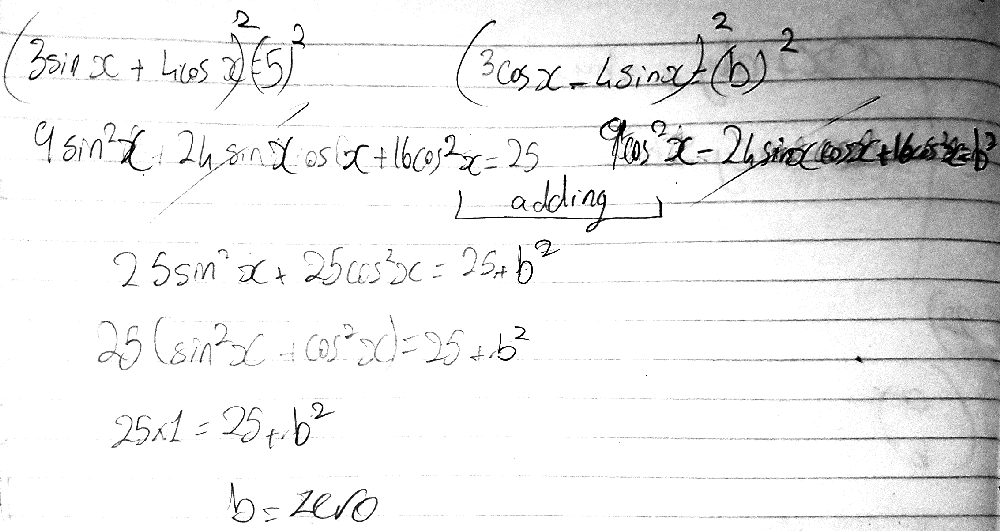 (3sin x + 4cos x)²=(5)² (3cosx - 4sinx)²=(b)²
9sin²x + 24sinxcosx + 16cos²x = 25 9cos²x - 24sinxcosx + 16cos²x = b²
adding
25sin²x + 25cos²x = 25 + b²
25(sin²x + cos²x) = 25 + b²
25×1 = 25 + b²
b = zero